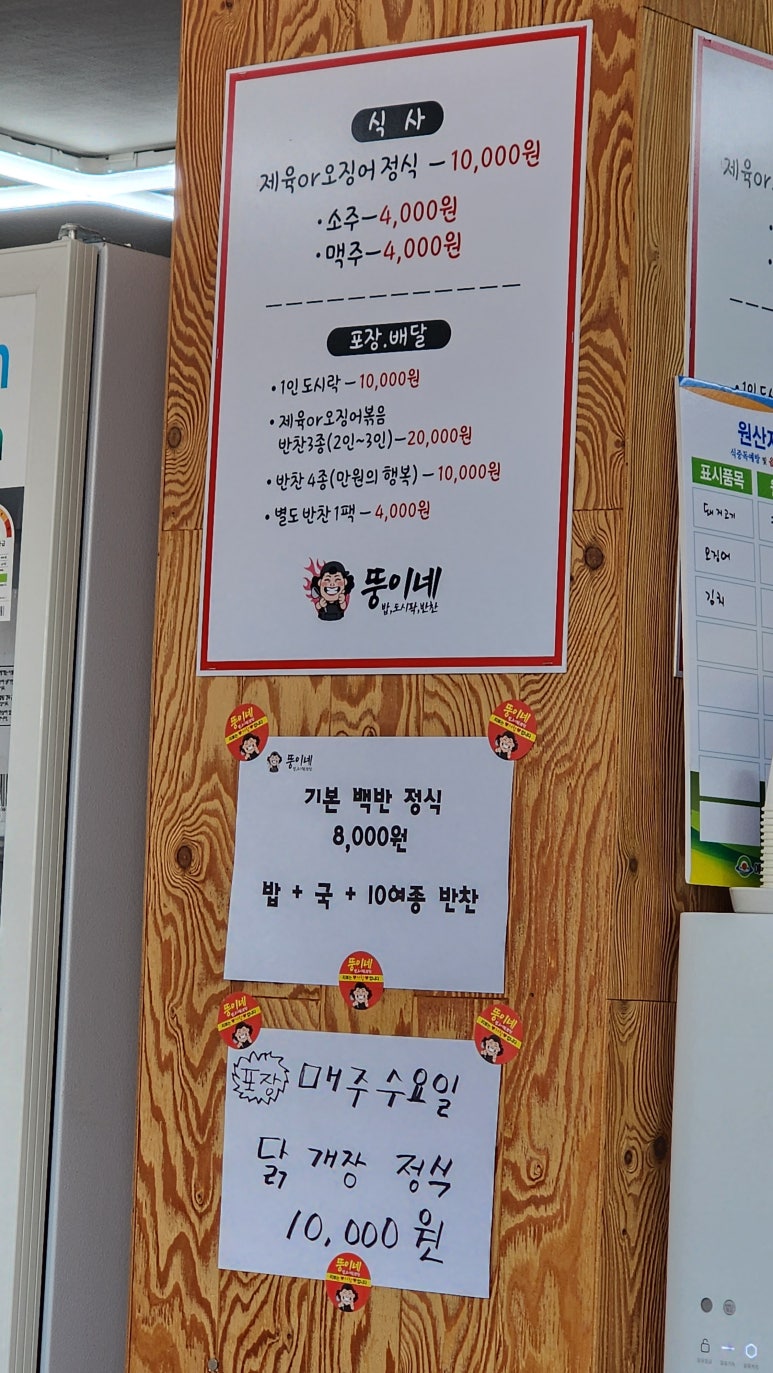 식 사
제육or오징어 정식 – 10,000원
·소주–4,000원
·맥주–4,000원
포장.배달
·1인 도시락 – 10,000원
·제육or오징어볶음
반찬3종(2인~3인)–20,000원
·반찬 4종(만원의 행복) – 10,000원
·별도 반찬 1팩 – 4,000원
뚱이네
밥,도시락,반찬
뚱이네
뚱이네
뚱이네
기본 백반 정식
8,000원
밥 + 국 + 10여종 반찬
뚱이네
뚱이네
뚱이네
포장 매주 수요일
닭 개장 정식
10,000원
뚱이네
제육or
원산
표시품목
돼지고기
오징어
김치